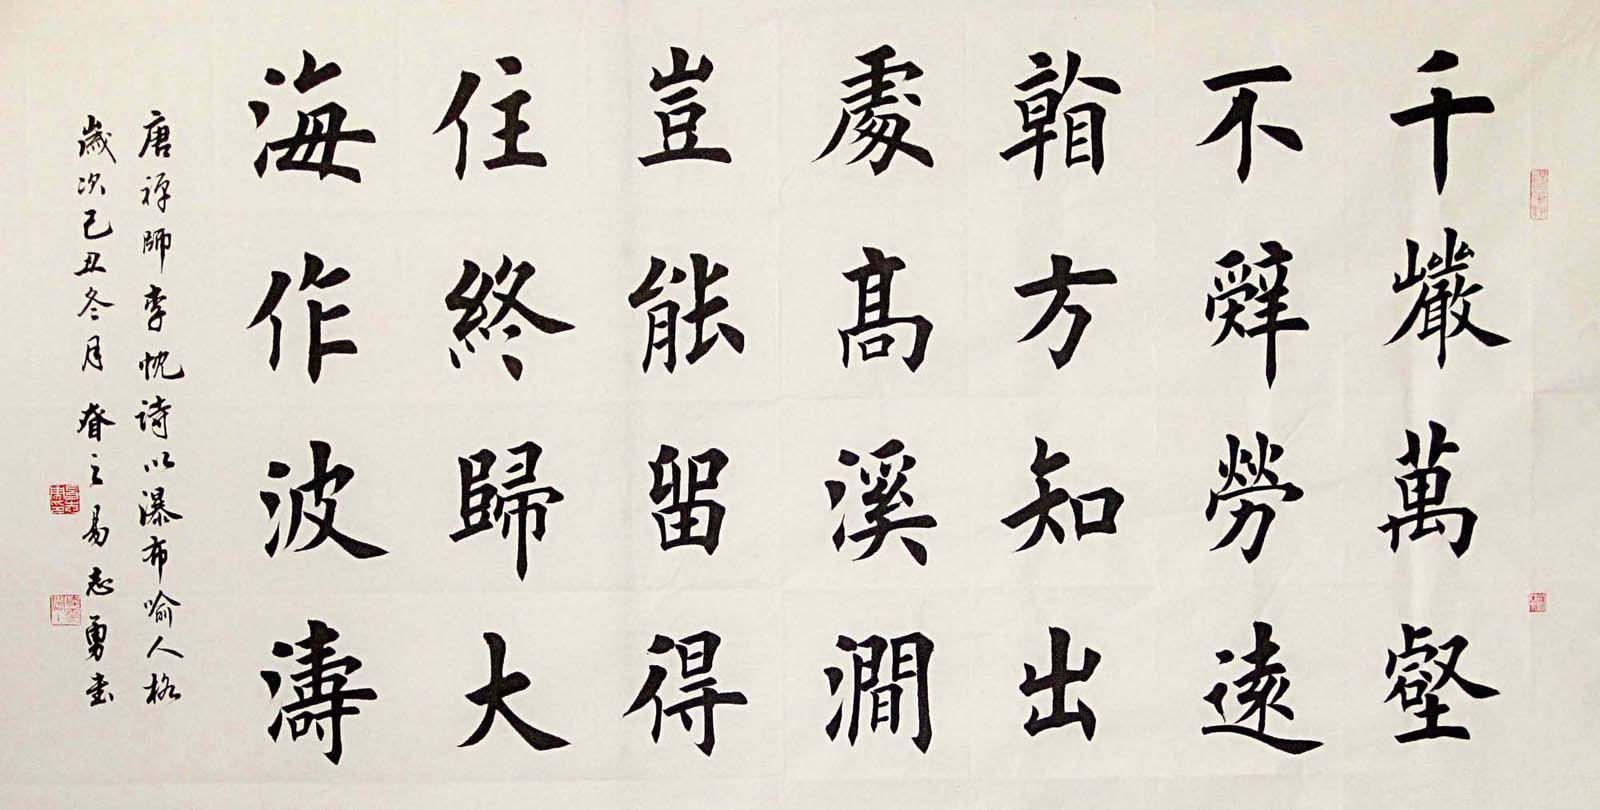 千巖萬壑
不辭勞遠
看方知出
處髙溪澗
豈能留得
住終歸大
海作波濤
唐禅師李忱詩以瀑布喻人格
歲次己丑冬月 之易志勇書